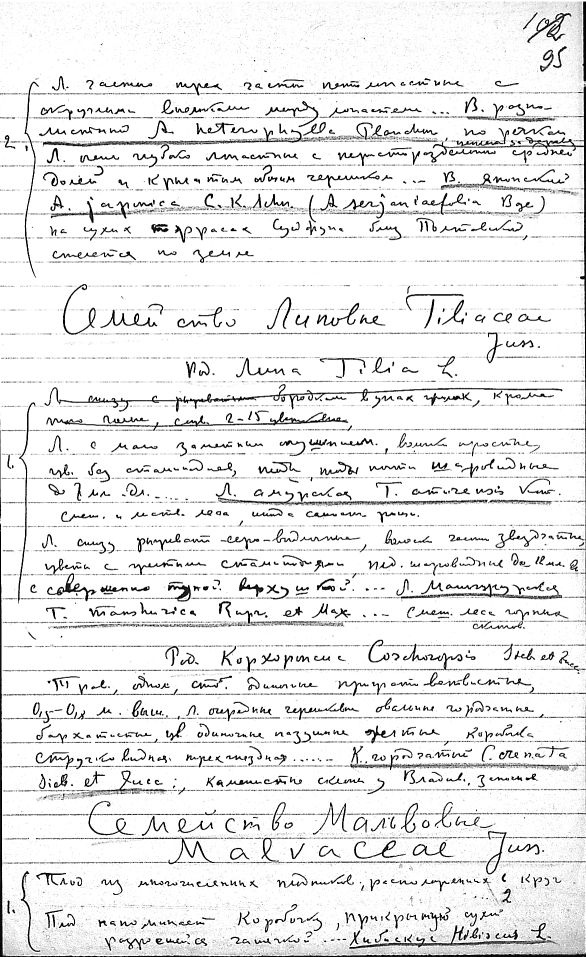 95
Л. частью трех части пятилопастные с
округлыми выемками между лопастями... В. разно-
2. листный A. heterophylla Planchon, по речкам
Л. очень глубоко лопастные с перисторазделенной средней
долей и крылатым общим черешком... В. Японский
A. japonica C. K. Schn. (A serjaniaefolia Bge)
на сухих террасах Суйфуна близ Полтавки,
стелется по земле
Семейство Липовые Tiliaceae
Juss.
Род. Липа Tilia L.
Л. снизу с бородками в углах, кроме
того голые, 2-15 цветковые,
1. Л. с мало заметным опушением, волоски простые,
цв. без стаминодиев, плоды почти шаровидные
до 7 мм. дл..... Л. амурская T. amurensis Kom.
смеш. и листв. леса,
Л. снизу серо-войлочные, волоски части звездчатые,
цветы с стаминодиями, пл. шаровидные до 12 мм. дл.
с совершенно тупой верхушкой... Л. Маньчжурская
T. manshurica Rupr. et Max... Смеш. леса горных
склонов.
Род. Корхоропсис Corchoropsis Sieb et Zucc.
Трав., однол., стеб. одиночные ветвистые,
0,5—0,8 м. выш. л. очередные черешковые овальные городчатые,
бархатистые, цв одиночные пазушные желтые коробочка
стручковидная трехгнездная...... К. городчатый C. crenata
Sieb. et Zucc.; каменистые склоны у Владив.,
Семейство Мальвовые
Malvaceae Juss.
1. Плод из многочисленных плодиков, расположенных в круг
... 2
Плод напоминает Коробочку, прикрытую сухой
разросшейся чашечкой.... Хибискус Hibiscus L.